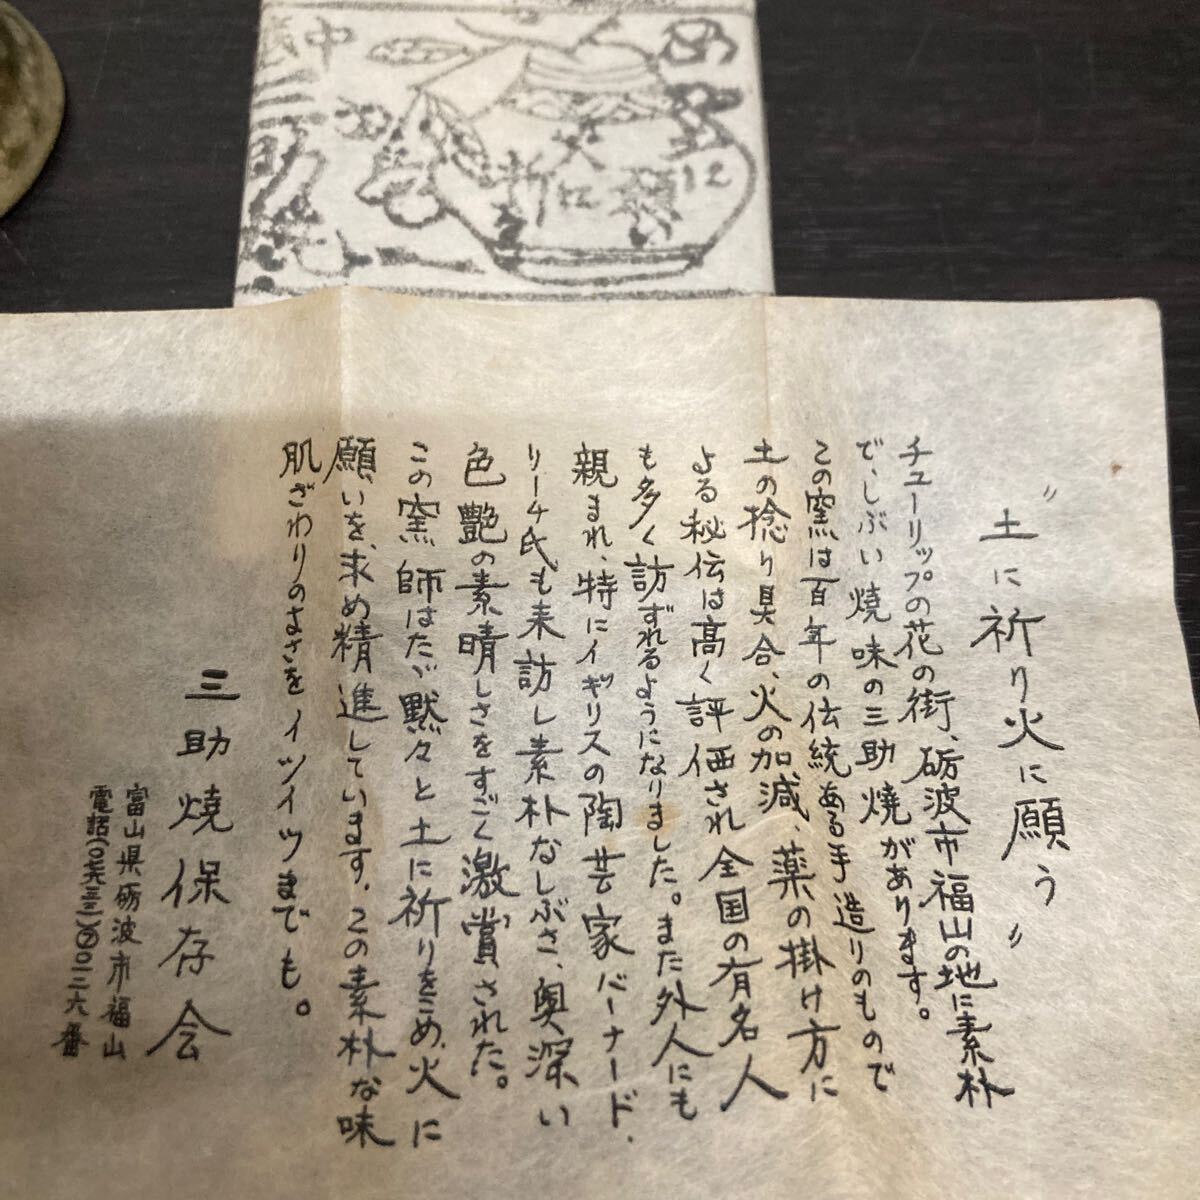 〝土に祈り火に願う〟
チューリップの花の街、砺波市福山の地に素朴
で、しぶい焼味の三助焼があります。
この窯は百年の伝統ある手造りのもので
土の捻り具合、火の加減、薬の掛け方に
よる秘伝は高く評価され全国の有名人
も多く訪ずれるようになりました。また外人にも
親まれ、特にイギリスの陶芸家バーナード、
リーチ氏も来訪し素朴なしぶさ、奥深い
色艶の素晴しさをすごく激賞された。
この窯師はたゞ黙々と土に祈りをこめ、火に
願いを、求め精進しています。この素朴な味
肌ざわりのよさをイツイツまでも。
三助焼保存会
富山県砺波市福山
三助焼